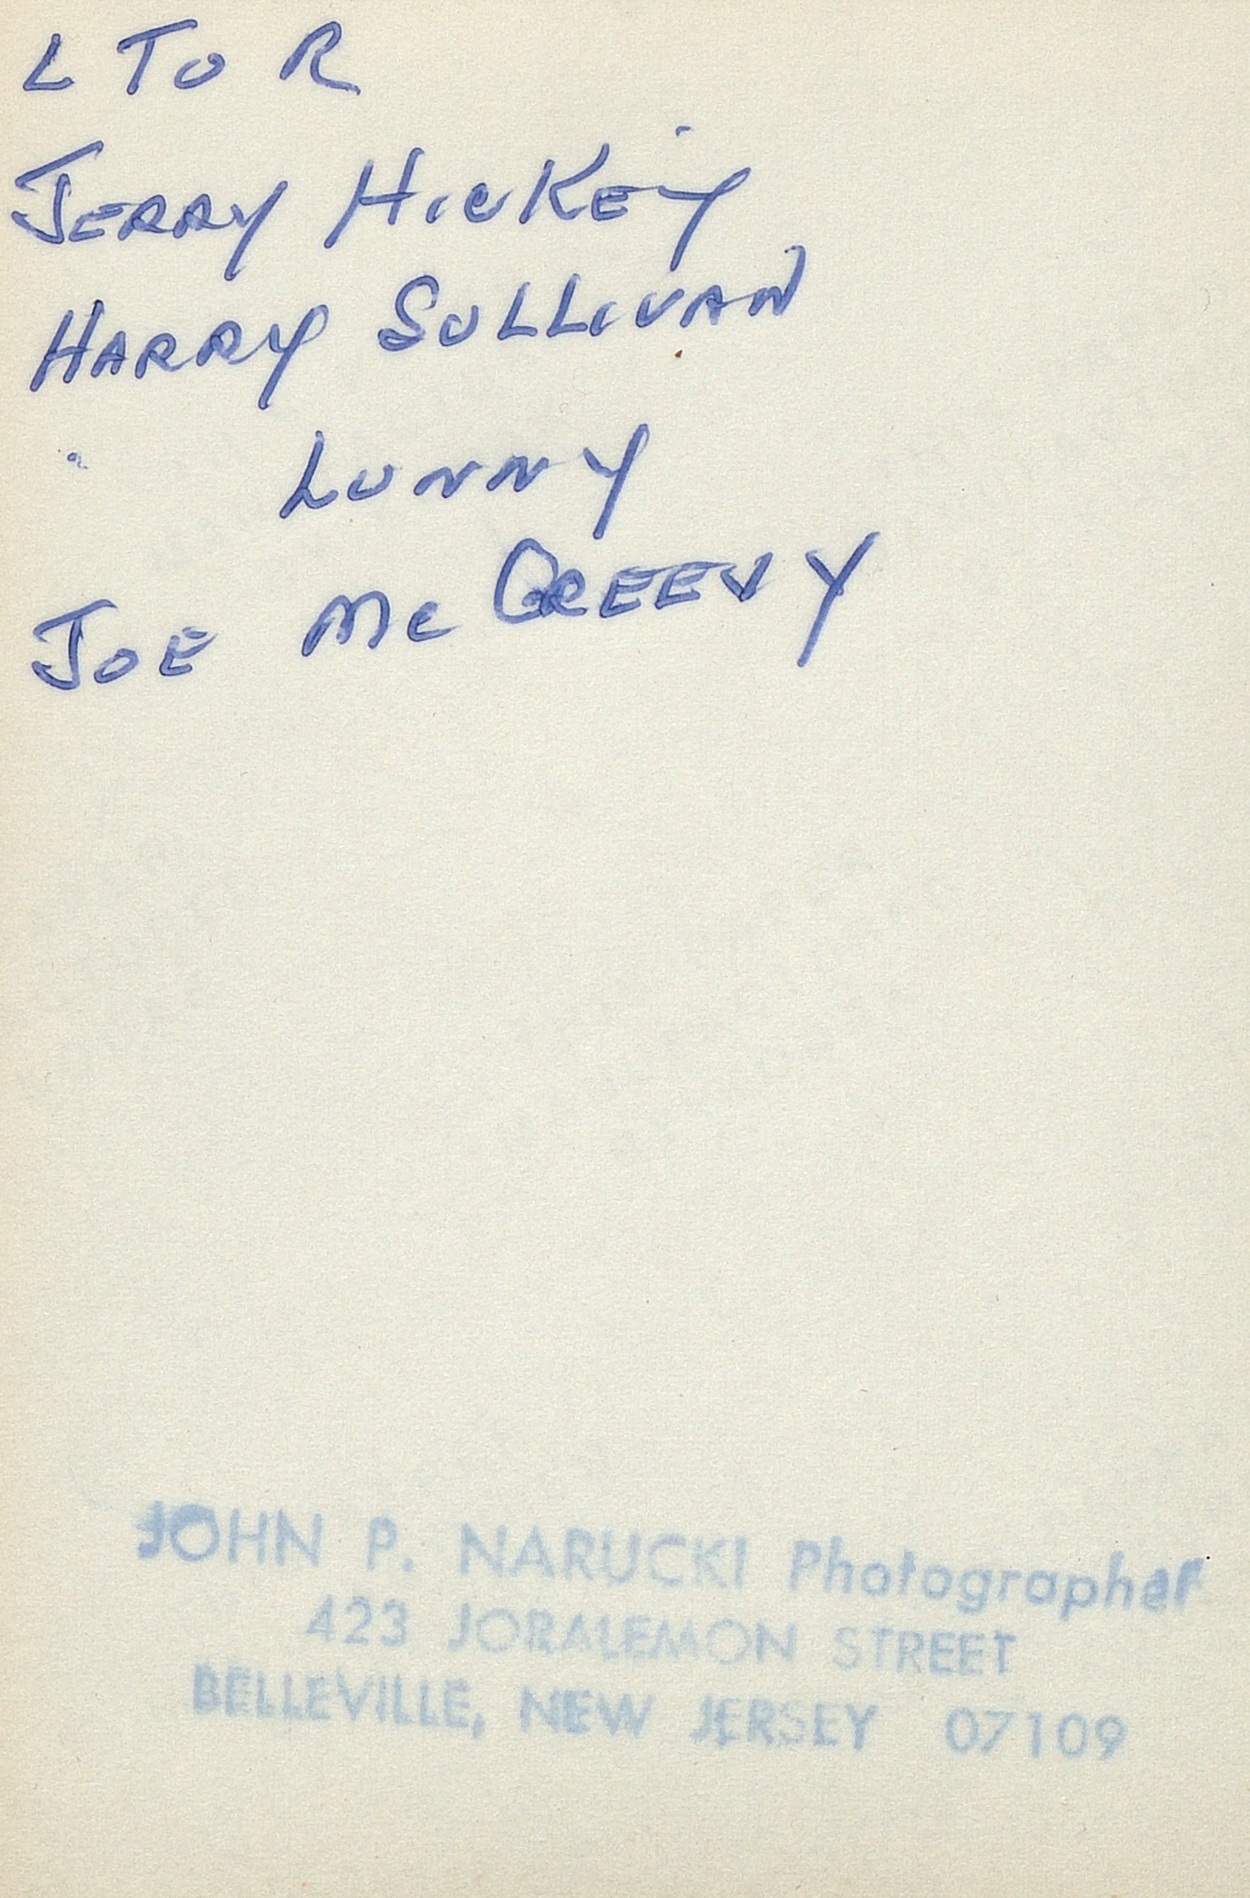 L TO R
JERRY HICKEY
HARRY SULLIVAN
LUNNY
JOE McGREEVY
JOHN P. NARUCKI Photographer
423 JORALEMON STREET
BELLEVILLE, NEW JERSEY 07109